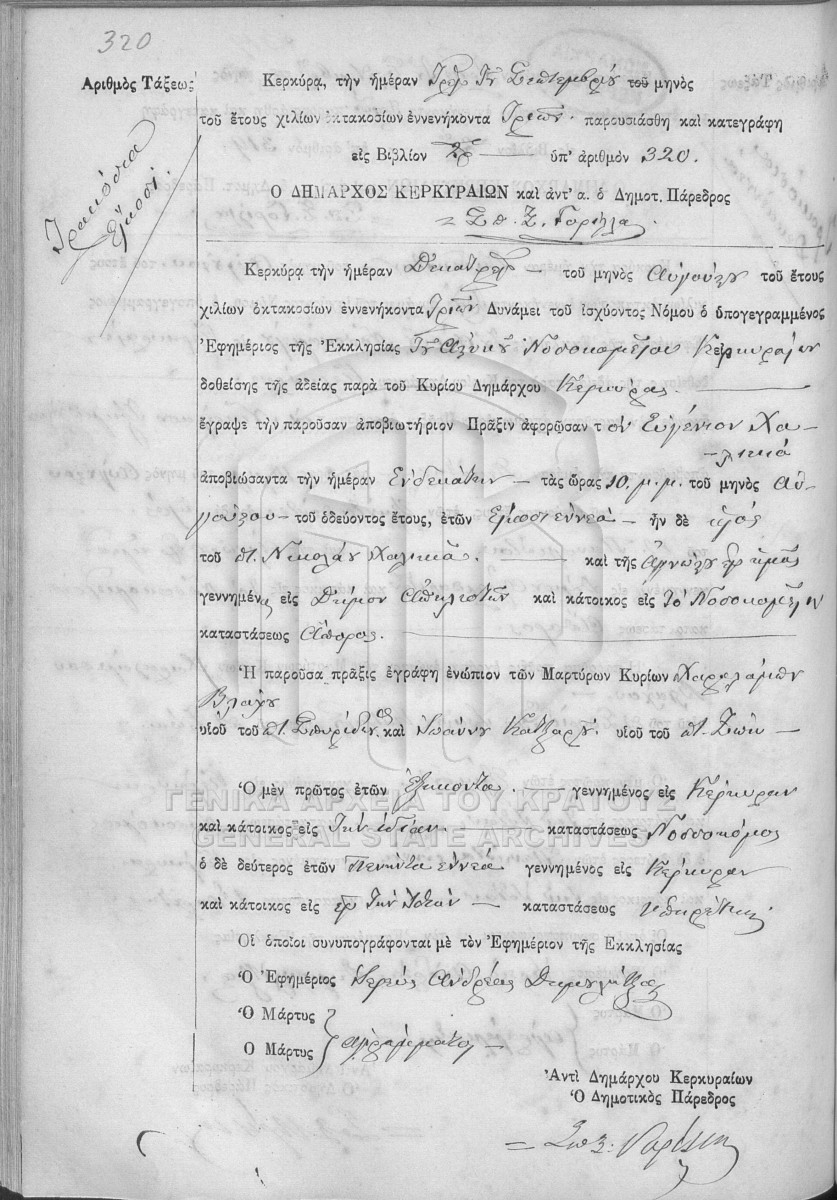 320
Ἀριθμὸς Τάξεως
Τριακόσια
Εἴκοσι
Κερκύρᾳ, τὴν ἡμέραν Τρεῖς Τοῦ Σεπτεμβρίου τοῦ μηνὸς
τοῦ ἔτους χιλίων ὀκτακοσίων ἐννενήκοντα Τριῶν. παρουσιάσθη καὶ κατεγράφη
εἰς Βιβλίον ὑπ' ἀριθμὸν 320.
Ο ΔΗΜΑΡΧΟΣ ΚΕΡΚΥΡΑΙΩΝ καὶ ἀντ' α. ὁ Δημοτ. Πάρεδρος
Κερκύρᾳ τὴν ἡμέραν Δεκατρεῖς τοῦ μηνὸς Αὐγούστου τοῦ ἔτους
χιλίων ὀκτακοσίων ἐννενήκοντα Τριῶν Δυνάμει τοῦ ἰσχύοντος Νόμου ὁ ὑπογεγραμμένος
Ἐφημέριος τῆς Ἐκκλησίας Τοῦ Νοσοκομείου Κερκυραίων
δοθείσης τῆς ἀδείας παρὰ τοῦ Κυρίου Δημάρχου Κερκύρας.
ἔγραψε τὴν παροῦσαν ἀποβιωτήριον Πρᾶξιν ἀφορῶσαν τ ὸν Εὐγένιον Χα-
-λικιά
ἀποβιώσαντα τὴν ἡμέραν Ἑνδεκάτην τὰς ὥρας 10. μ.μ. τοῦ μηνὸς Αὐ-
γούστου τοῦ ὁδεύοντος ἔτους, ἐτῶν Εἴκοσι εννέα ἦν δὲ υἱὸς
τοῦ π. Νικολάου Χαλικιᾶ. καὶ τῆς
γεννημένος εἰς Δῆμον καὶ κάτοικος εἰς Τὸ Νοσοκομεῖον
καταστάσεως Ἄπορος.
Ἡ παροῦσα πρᾶξις ἐγράφη ἐνώπιον τῶν Μαρτύρων Κυρίων Χαραλάμπου
Βλάχου
υἱοῦ τοῦ π. Σπυρίδωνος καὶ Ἰωάννου υἱοῦ τοῦ π.
Ὁ μὲν πρῶτος ἐτῶν ἑξήκοντα. γεννημένος εἰς Κέρκυραν
καὶ κάτοικος εἰς Τὴν ἰδίαν. καταστάσεως Νοσοκόμος
ὁ δὲ δεύτερος ἐτῶν Πενῆντα εννεά γεννημένος εἰς Κέρκυραν
καὶ κάτοικος εἰς Τὴν Ἰδίαν καταστάσεως Υπηρέτης
Οἱ ὁποῖοι συνυπογράφονται μὲ τὸν Ἐφημέριον τῆς Ἐκκλησίας
Ὁ Ἐφημέριος Ἱερεὺς Ἀνδρέας
Ὁ Μάρτυς
Ὁ Μάρτυς ἀγράμματοι
Ἀντὶ Δημάρχου Κερκυραίων
Ὁ Δημοτικὸς Πάρεδρος
ΓΕΝΙΚΑ ΑΡΧΕΙΑ ΤΟΥ ΚΡΑΤΟΥΣ
GENERAL STATE ARCHIVES